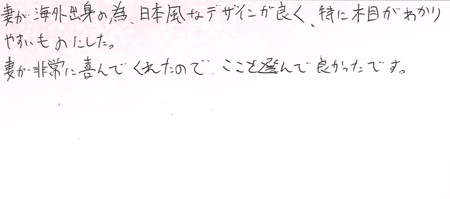 妻が海外出身の為、日本風なデザインが良く、特に木目がわかり
やすいものにした。
妻が非常に喜んでくれたので、ここを選んで良かったです。